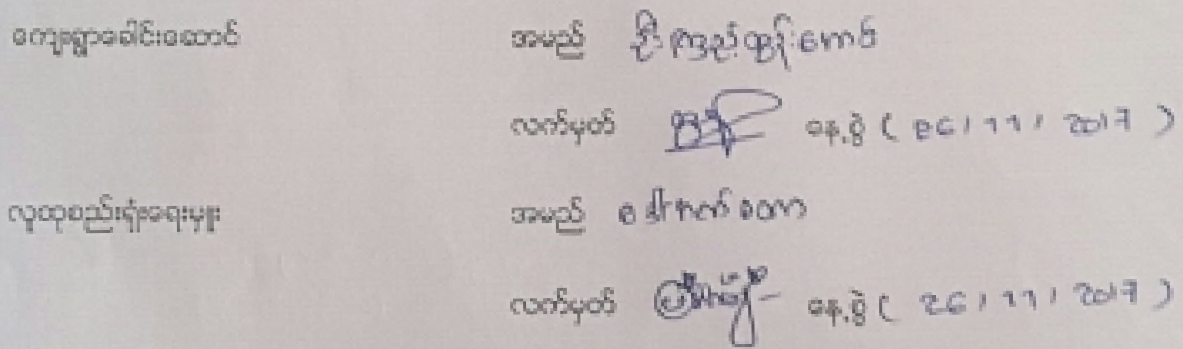 ကျေးရွာခေါင်းဆောင် အမည် ဦးကြည်ထွန်းအောင်
လက်မှတ် နေ့စွဲ ( 26 / 11 / 2017 )
လူထုစည်းရုံးရေးမှူး အမည်
လက်မှတ် နေ့စွဲ ( 26 / 11 / 2017 )